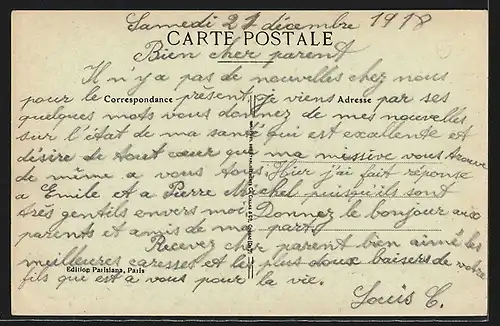 Samedi 21 décembre 1918
CARTE POSTALE
Bien cher parent
Il n'y a pas de nouvelles chez nous
pour le présent je viens par ses
Correspondance
Adresse
quelques mots vous donnez de mes nouvelles
sur l'état de ma santé qui est excellente et
désire de tout cœur que ma messive vous trouve
de même a vous tous. Hier j'ai fait réponse
a Emile et a Pierre Michel puisqu'ils sont
très gentils envers moi. Donnez le bonjour aux
parents et amis de ma part.
Recevez cher parent bien aimé les
meilleures caresses et les plus doux baisers de votre
Edition Parisiana, Paris
fils que est a vous pour la vie.
Louis C.